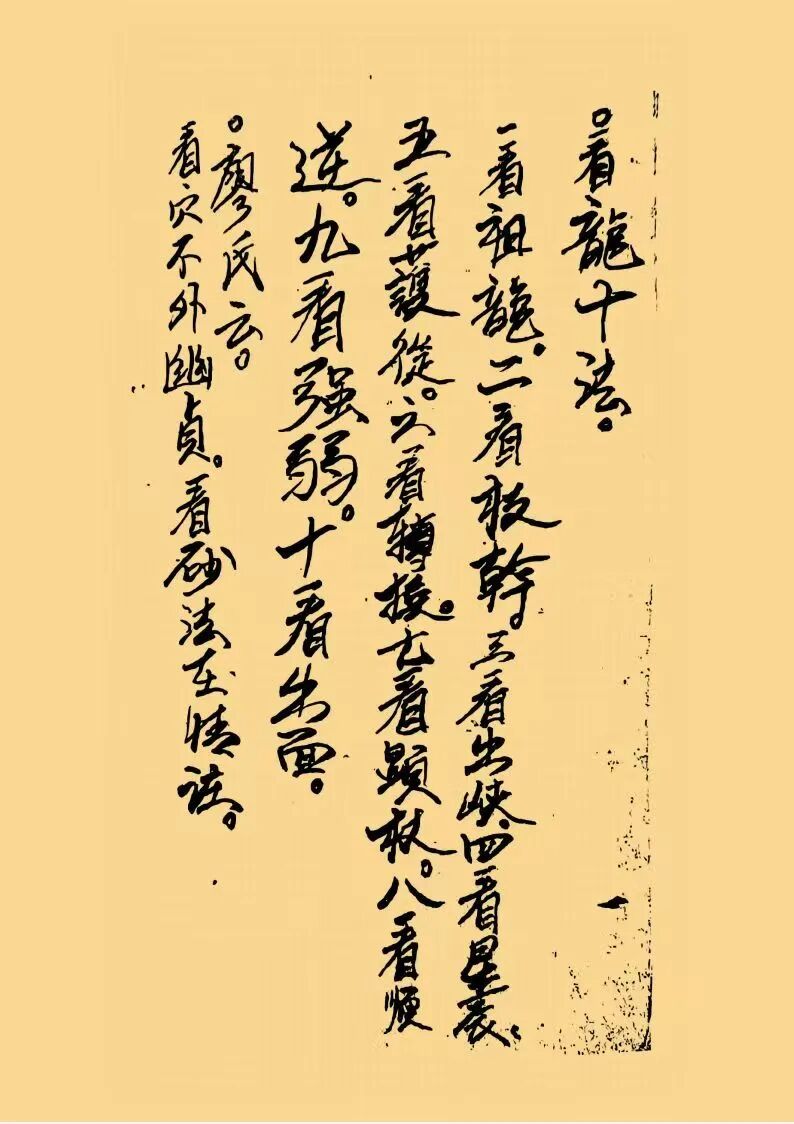 看龍十法。
一看祖龍。二看枝幹。三看出峽。四看星辰。
五看護從。六看轉接。七看顕杖。八看順
逆。九看强弱。十看出面。
廖氏云。
看穴不外幽貞。看砂法在情